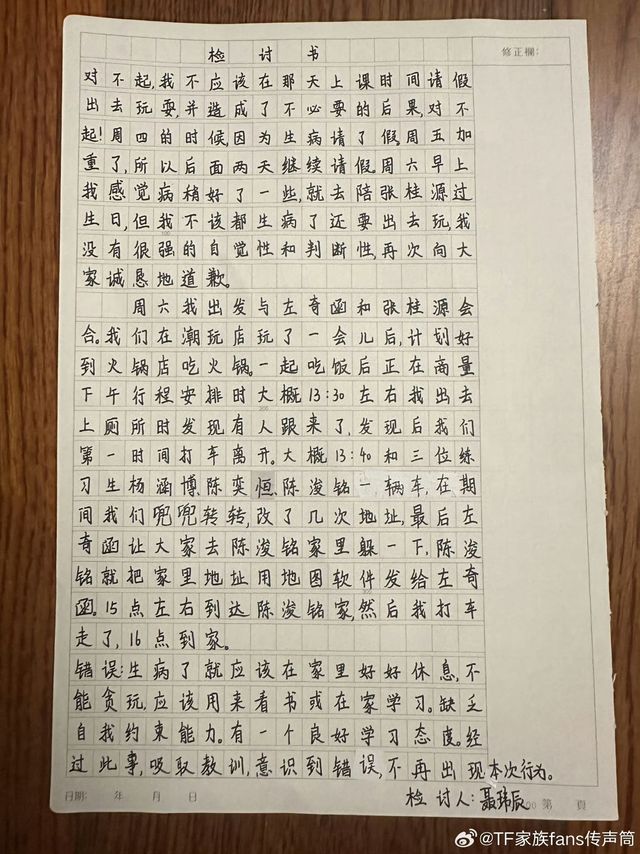 修正欄：
检讨书
对不起,我不应该在那天上课时间请假
出去玩耍,并造成了不必要的后果,对不
起!周四的时候,因为生病请了假,周五加
重了,所以后面两天继续请假,周六早上
我感觉病稍好了一些,就去陪张桂源过
生日,但我不该都生病了还要出去玩,我
没有很强的自觉性和判断性,再次向大
家诚恳地道歉。
周六我出发与左奇函和张桂源会
合。我们在潮玩店玩了一会儿后,计划好
到火锅店吃火锅。一起吃饭后正在商量
下午行程安排时大概13:30左右我出去
上厕所时发现有人跟来了,发现后我们
第一时间打车离开。大概13:40和三位练
习生杨涵博、陈奕恒、陈浚铭一辆车,在期
间我们兜兜转转,改了几次地址,最后左
奇函让大家去陈浚铭家里躲一下,陈浚
铭就把家里地址用地图软件发给左奇
函。15点左右到达陈浚铭家,然后我打车
走了,16点到家。
错误:生病了就应该在家里好好休息,不
能贪玩,应该用来看书或在家学习。缺乏
自我约束能力。有一个良好学习态度。经
过此事,吸取教训,意识到错误,不再出现本次行为。
检讨人:聂玮辰
日期： 年 月 日 第 頁
@TF家族fans传声筒